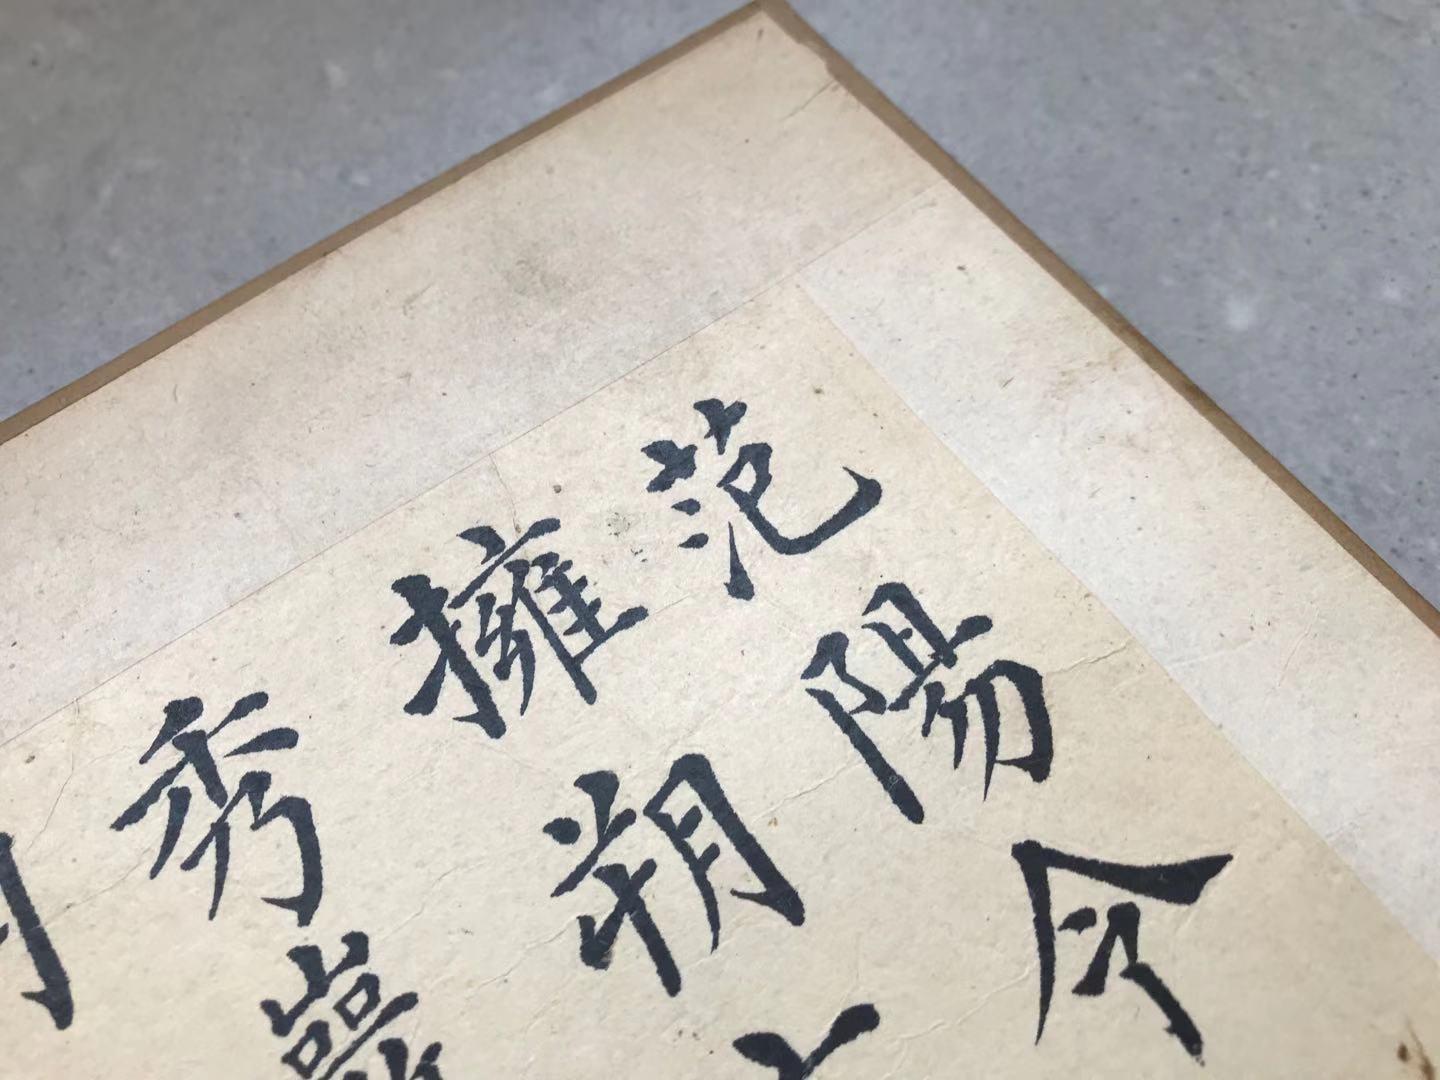 范陽令
擁朔
秀巖